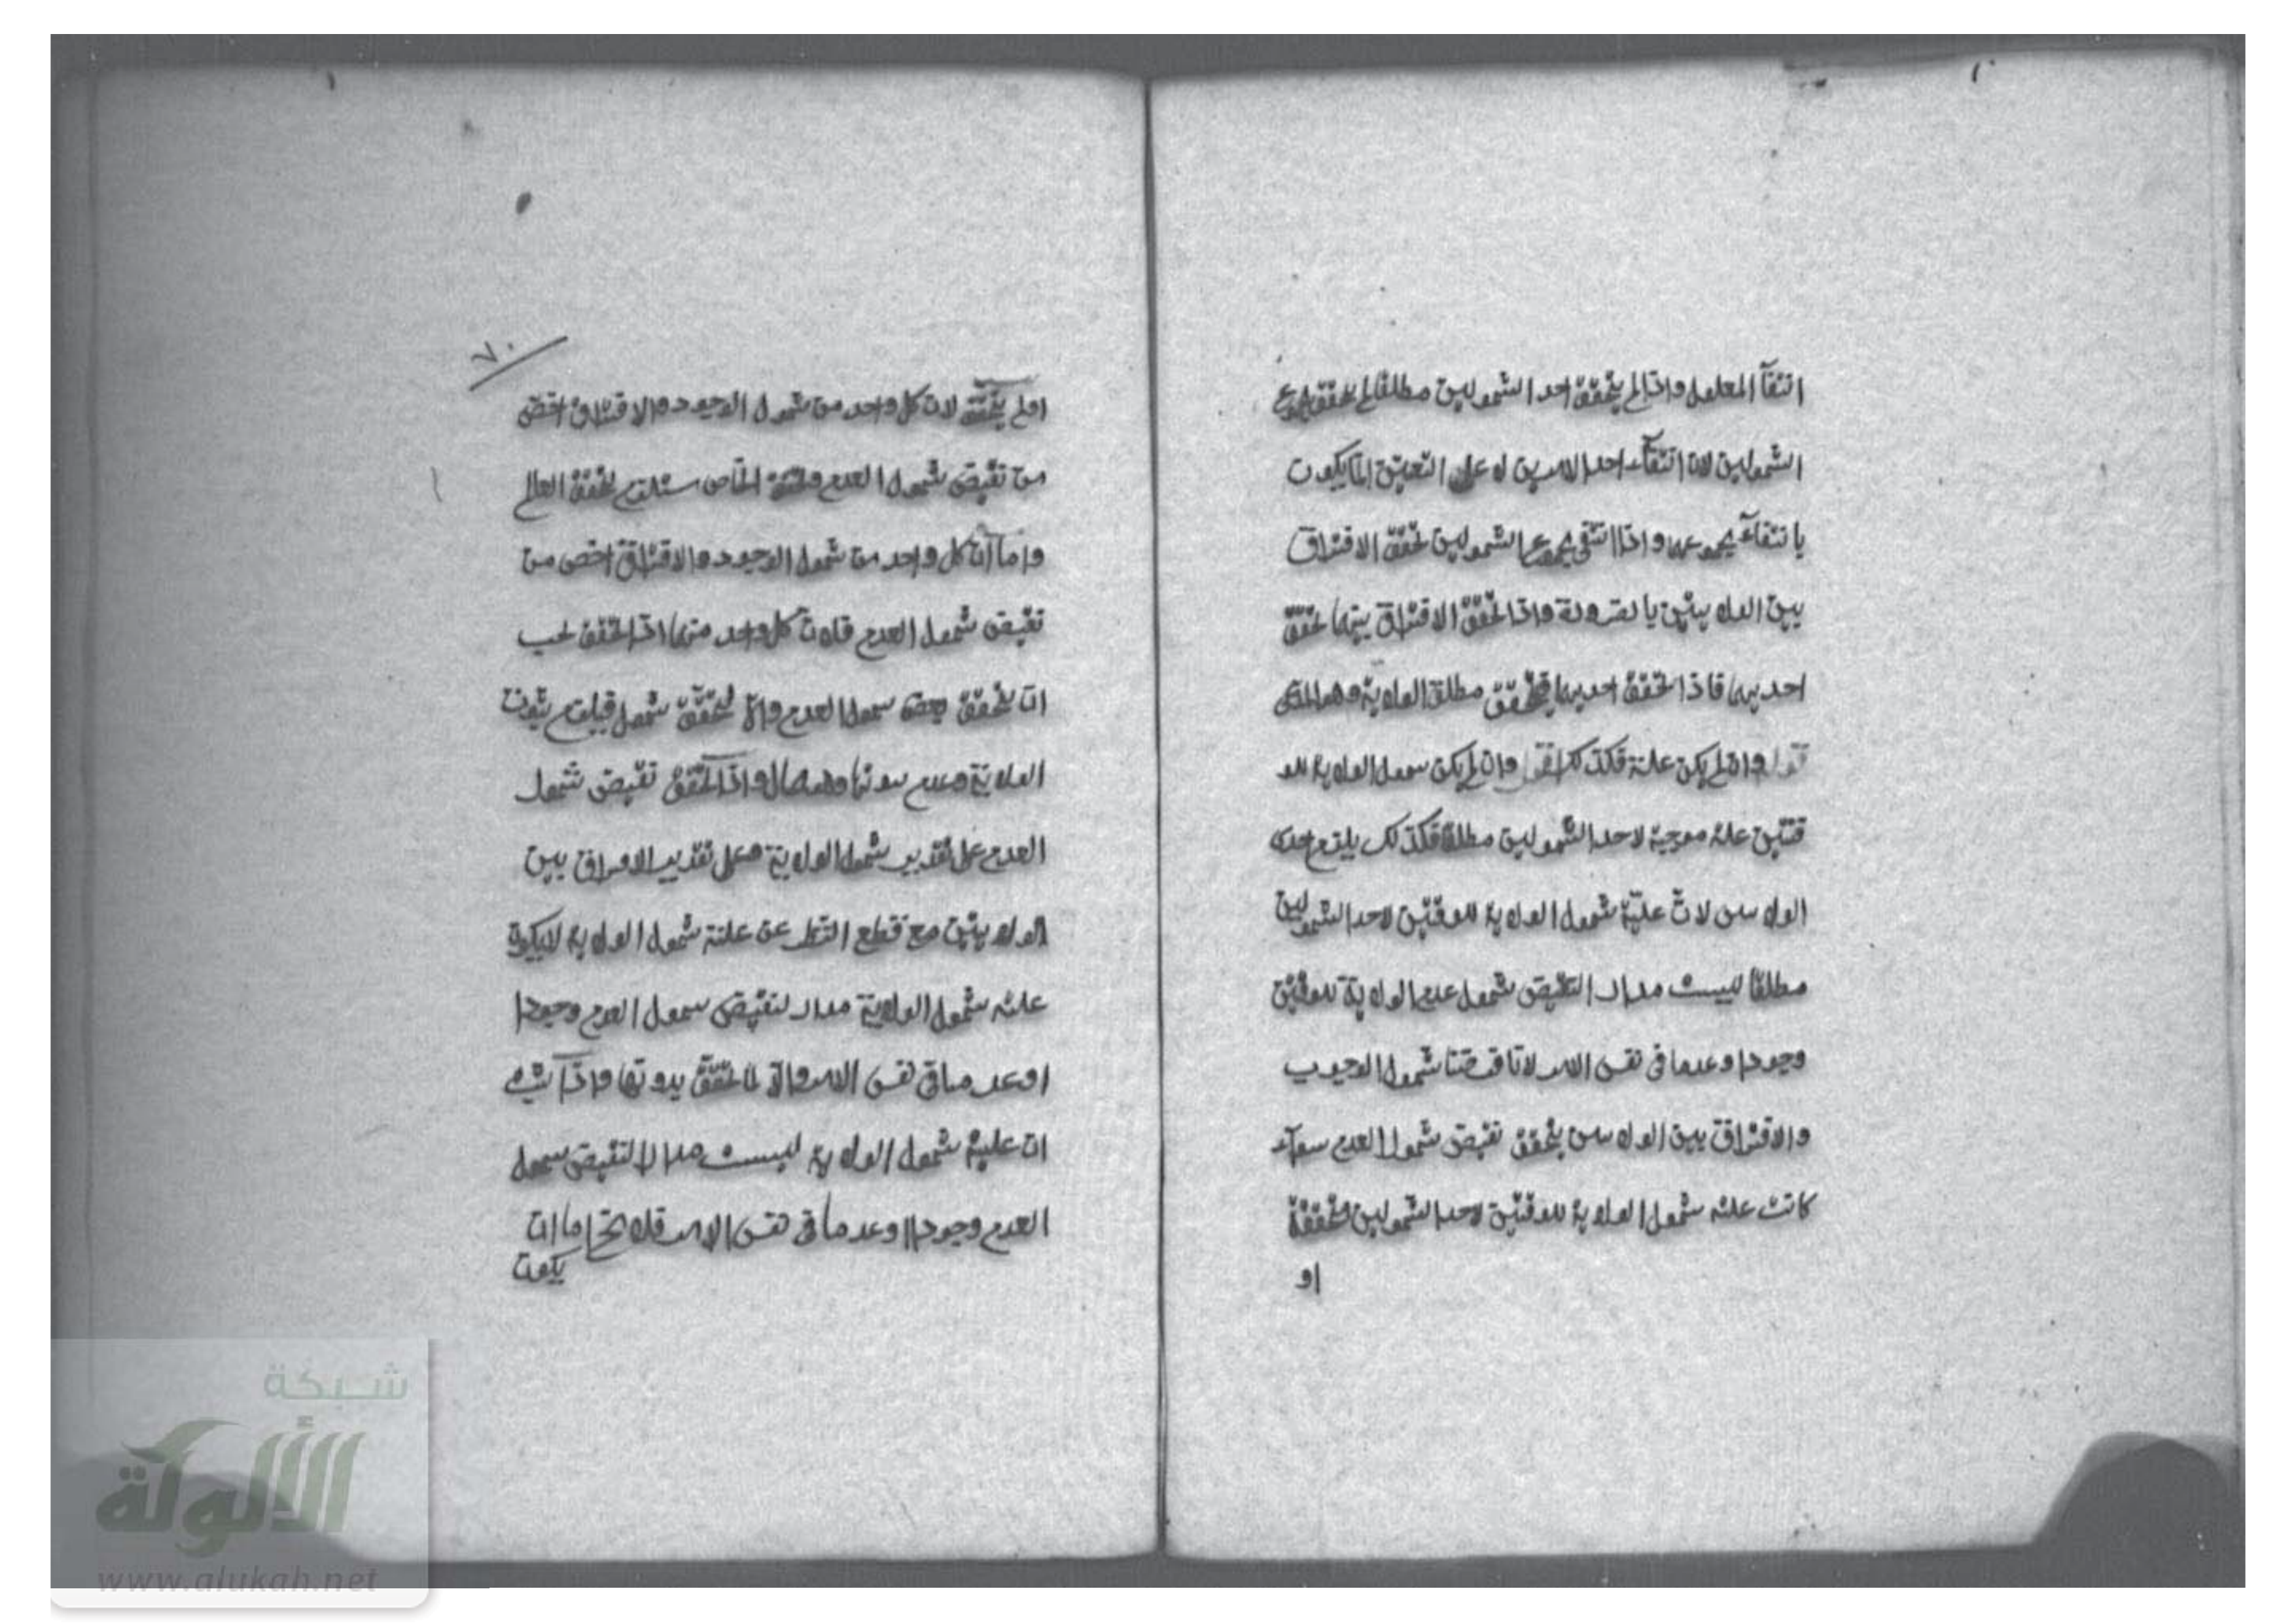 انتفآ المعلول واذا لم يتحقق احد الشمولين مطلقا لم يتحقق مجموع
الشمولين لان انتفآء احد الامرين لا على التعيين انما يكون
بانتفآء مجموعهما واذا انتفى مجموع الشمولين تحقق الافتراق
بين الولايتين بالضرورة واذا تحقق الافتراق بينهما تحقق
احديهما فاذا تحقق احديهما فيتحقق مطلق الولاية وهو المدعى
قوله وان لم يكن علة فكذلك اقول وان لم يكن شمول الولاية للو
قتين علة موجبة لاحد الشمولين مطلقا فكذلك يلزم احدى
الولايتين لان علية شمول الولاية للوقتين لاحد الشمولين
مطلقا ليست مدارا لنقيض شمول عدم الولاية للوقتين
وجودا وعدما في نفس الامر لانا فرضنا شمول الوجوب
والافتراق بين الولايتين يتحقق نقيض شمول العدم سوآء
كانت علة شمول الولاية للوقتين لاحد الشمولين متحققة
او
٧٠
اولم يتحقق لان كل واحد من شمول الوجود والافتراق اخص
من نقيض شمول العدم وتحقق الخاص مستلزم لتحقق العام
واما ان كل واحد من شمول الوجود والافتراق اخص من
نقيض شمول العدم فلان كل واحد منهما اذا تحقق يجب
ان يتحقق نقيض شمول العدم والا لتحقق شمول فيلزم ثبوت
الولاية وعدم ثبوتها وهو محال واذا تحقق نقيض شمول
العدم على تقدير شمول الولاية وعلى تقدير الافتراق بين
الولايتين مع قطع النظر عن علية شمول الولاية لا يكون
علية شمول الولاية مدارا لنقيض شمول العدم وجودا
وعدما في نفس الامر والا لما تحقق بدونها واذا ثبت
ان علية شمول الولاية ليست مدارا لنقيض شمول
العدم وجودا وعدما في نفس الامر فلا يخ اما ان
يكون
شبكة
الألوكة
www.alukah.net